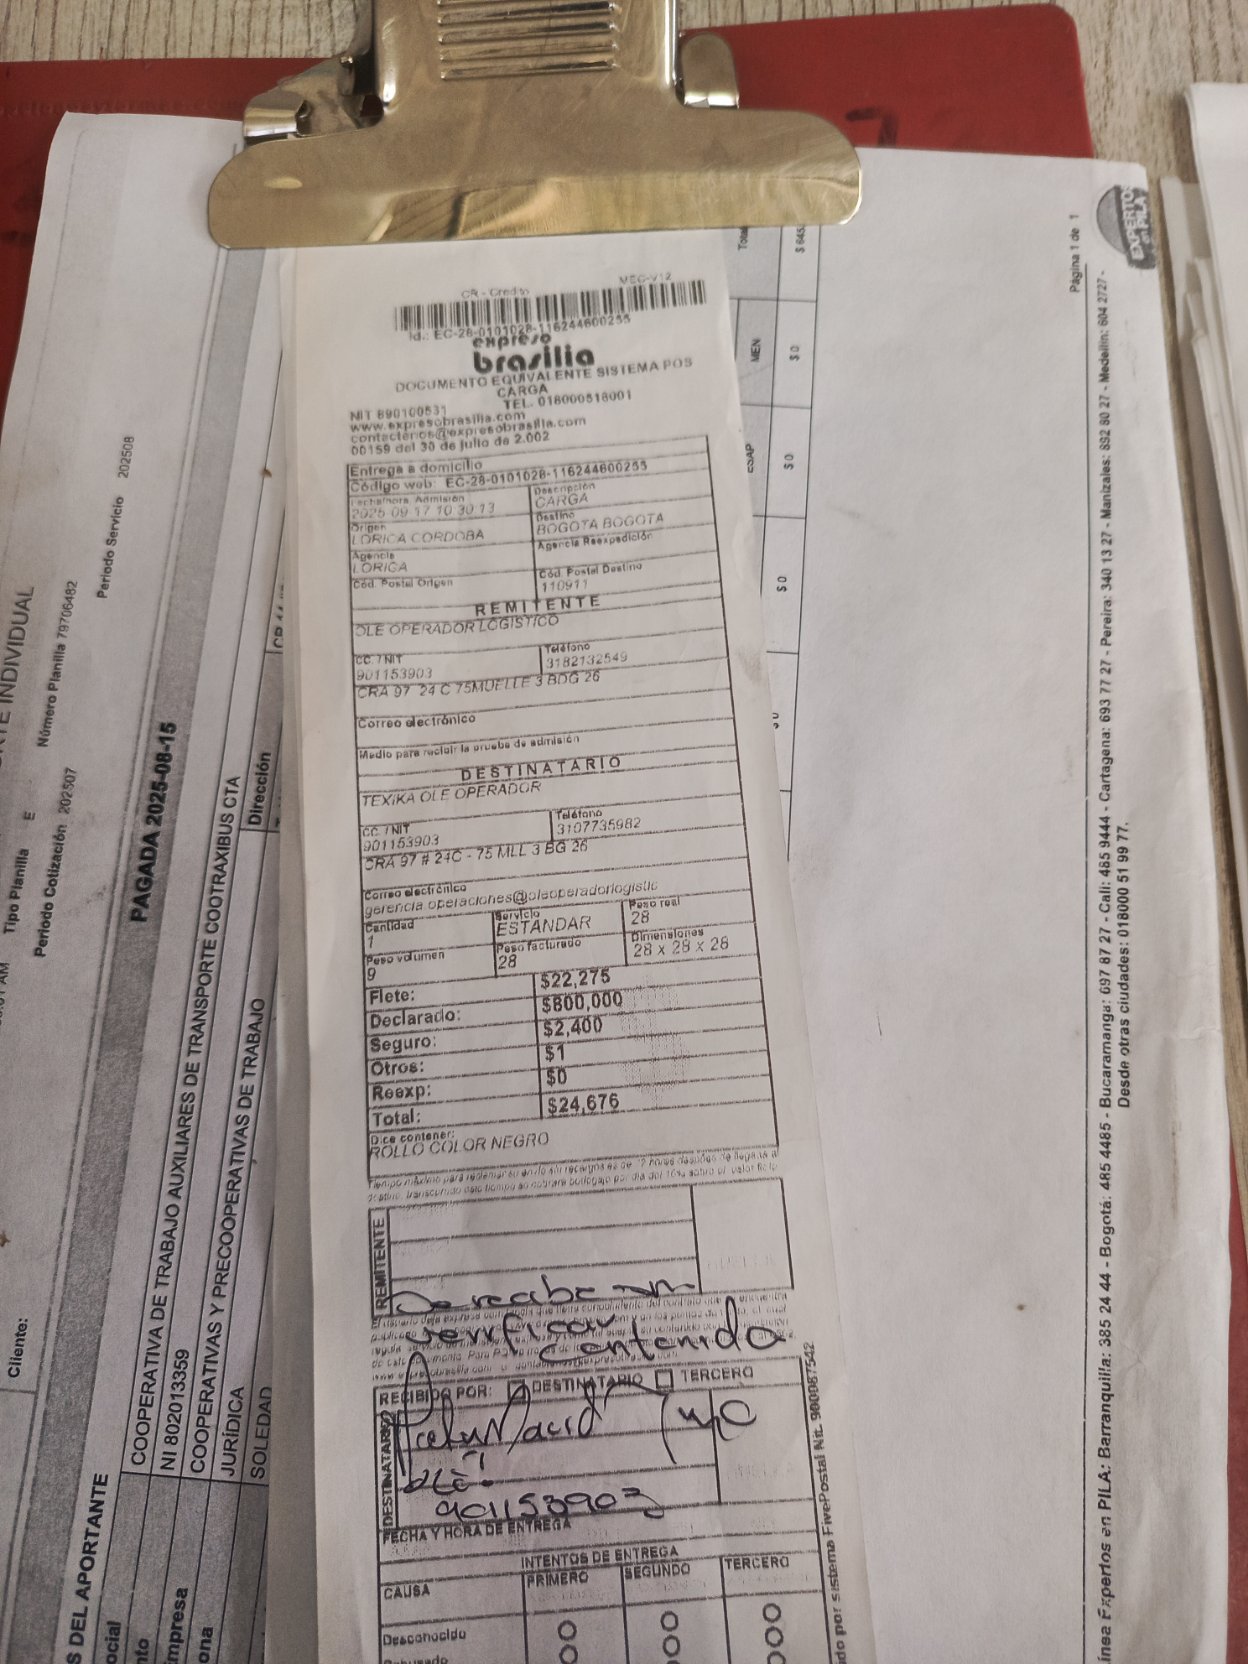 CR - Credito MEC-V12
Id.: EC-28-0101028-116244600255
expreso
brasilia
DOCUMENTO EQUIVALENTE SISTEMA POS
CARGA
NIT 890100531 TEL. 018000518001
www.expresobrasilia.com
contactenos@expresobrasilia.com
00159 del 30 de julio de 2.002
Entrega a domicilio
Código web: EC-28-0101028-116244600255
Fecha/hora Admisión Descripción
2025 09 17 10 30 13 CARGA
Origen Destino
LORICA CORDOBA BOGOTA BOGOTA
Agencia Agencia Reexpedición
LORICA
Cód. Postal Origen Cód. Postal Destino
110911
REMITENTE
OLE OPERADOR LOGISTICO
CC. / NIT Teléfono
901153903 3182132549
CRA 97 24 C 75MUELLE 3 BDG 26
Correo electrónico
Medio para recibir la prueba de admisión
DESTINATARIO
TEXIKA OLE OPERADOR
CC. / NIT Teléfono
901153903 3107735982
CRA 97 # 24C - 75 MLL 3 BG 26
Correo electrónico
gerencia operaciones@oleoperadorlogistic
Cantidad Servicio Peso real
1 ESTANDAR 28
Peso volumen Peso facturado Dimensiones
9 28 28 x 28 x 28
Flete: $22,275
Declarado: $800,000
Seguro: $2,400
Otros: $1
Reexp: $0
Total: $24,676
Dice contener:
ROLLO COLOR NEGRO
REMITENTE
Se recibe sin
verificar
contenido
RECIBIDO POR: DESTINATARIO TERCERO
DESTINATARIO
OLE
901153903
FECHA Y HORA DE ENTREGA
INTENTOS DE ENTREGA
CAUSA PRIMERO SEGUNDO TERCERO
Desconocido
Rehusado
ido por sistema FivePostal Nit. 900087542
Cliente:
Tipo Planilla E Número Planilla 79706482
Periodo Cotización 202507 Periodo Servicio 202508
PAGADA 2025-08-15
S DEL APORTANTE
COOPERATIVA DE TRABAJO AUXILIARES DE TRANSPORTE COOTRAXIBUS CTA
NI 802013359
COOPERATIVAS Y PRECOOPERATIVAS DE TRABAJO
JURÍDICA
SOLEDAD Dirección
ESAP MEN
$ 0 $ 0 $ 0
Página 1 de 1
EXPERTOS
en PILA
ínea Expertos en PILA: Barranquilla: 385 24 44 - Bogotá: 485 4485 - Bucaramanga: 697 87 27 - Cali: 485 9444 - Cartagena: 693 77 27 - Pereira: 340 13 27 - Manizales: 892 80 27 - Medellín: 604 2727 -
Desde otras ciudades: 018000 51 99 77.